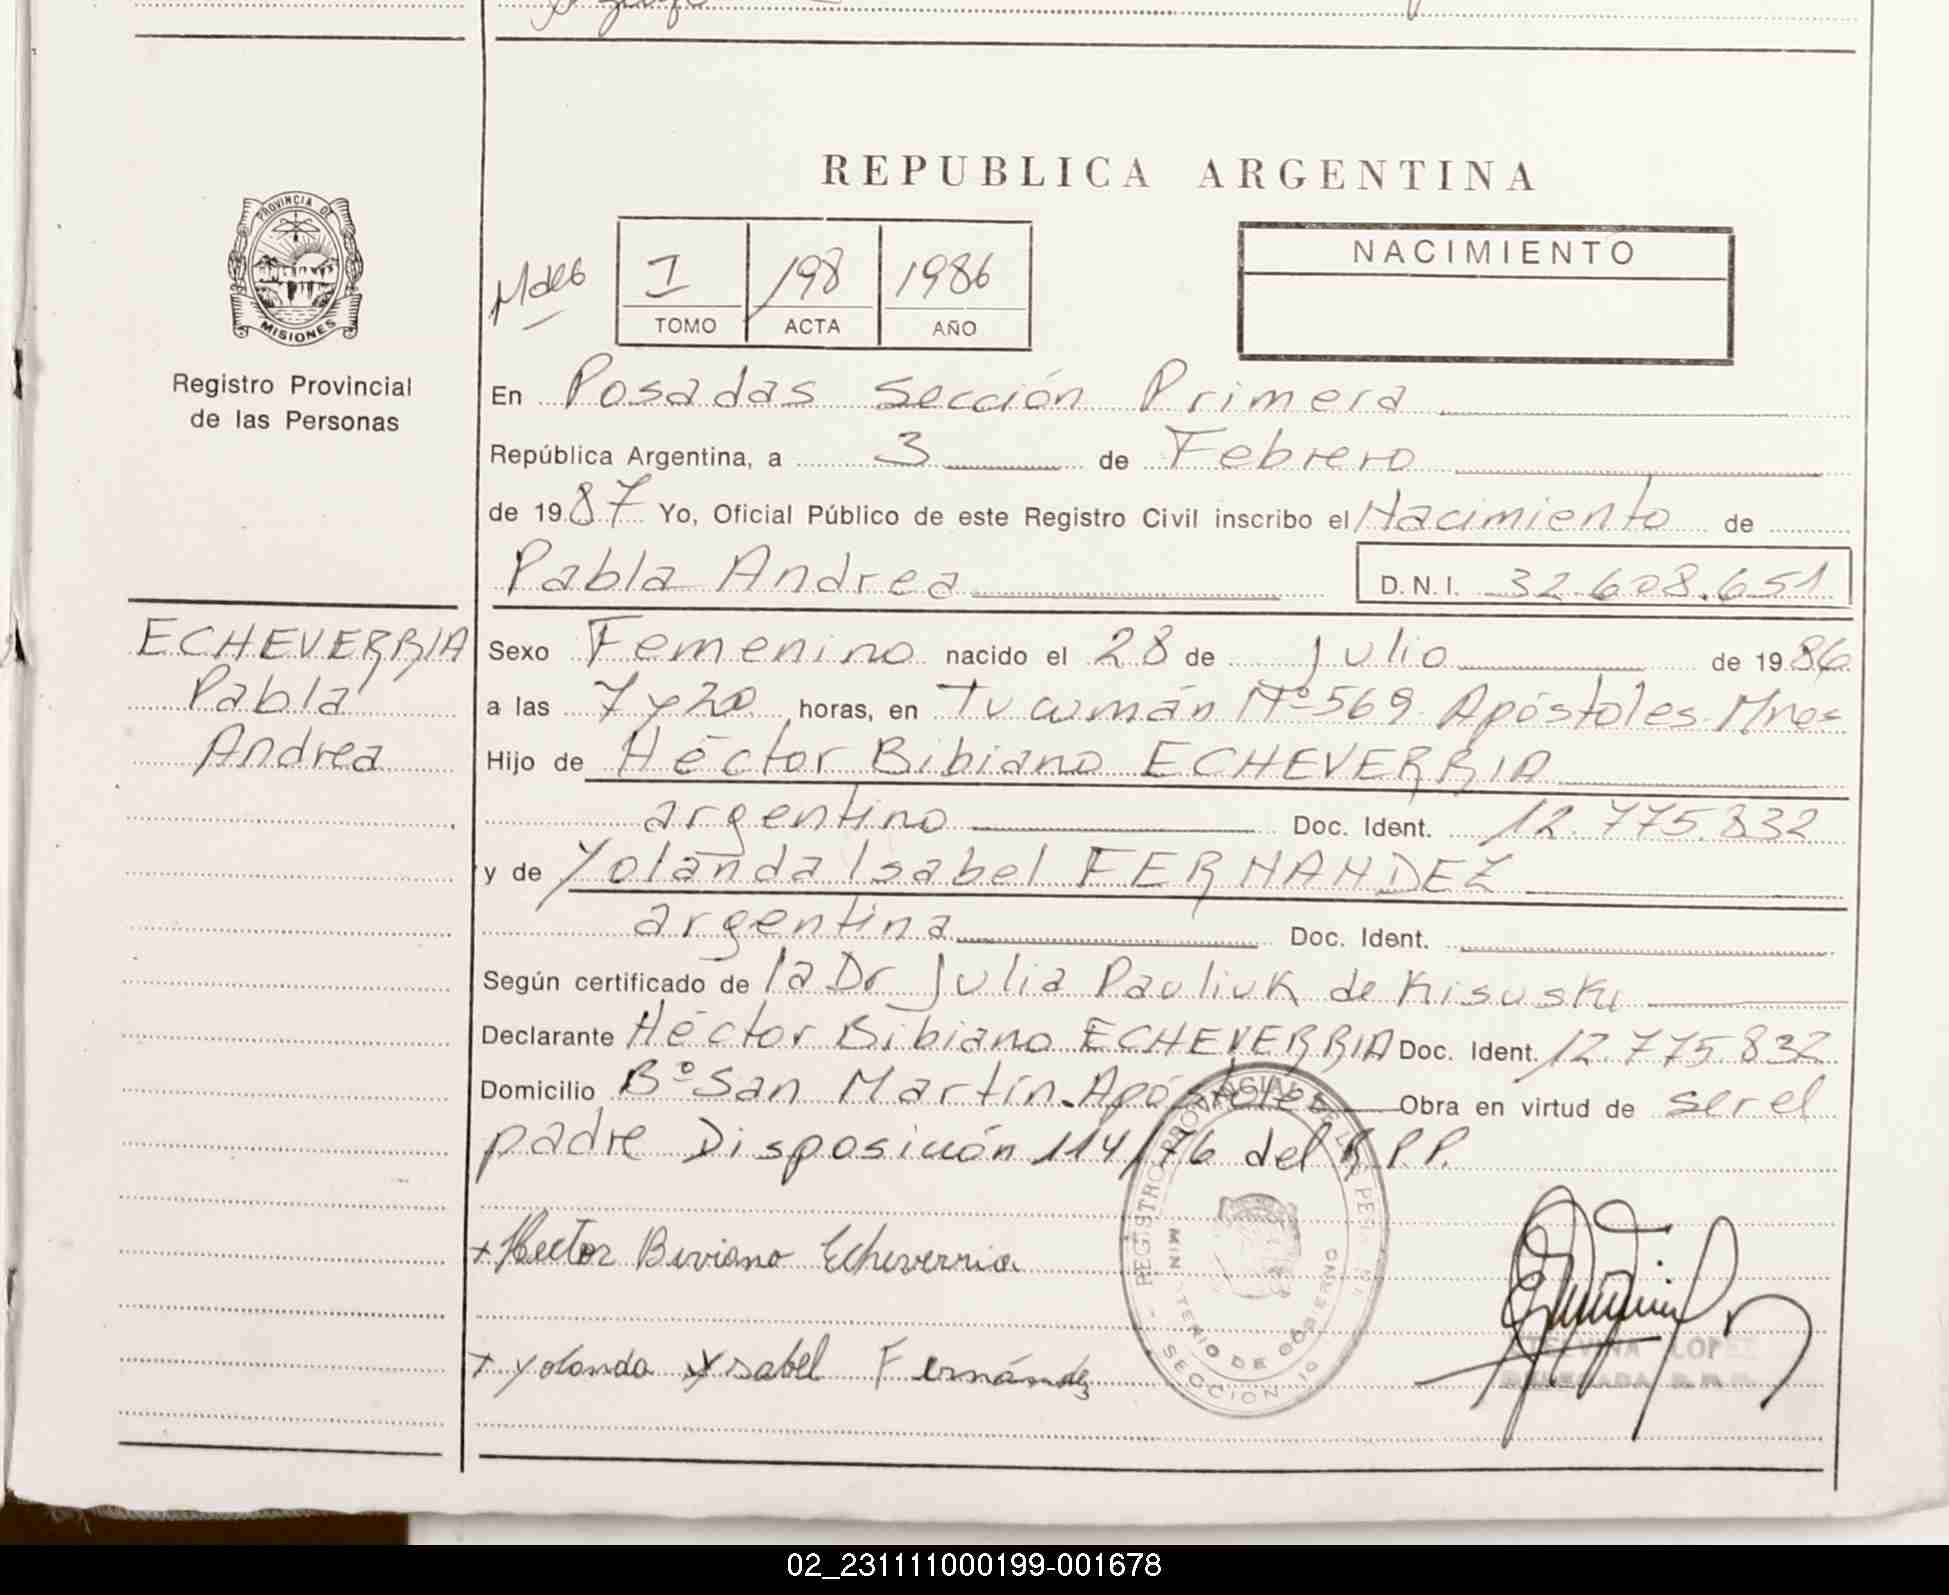 REPUBLICA ARGENTINA
PROVINCIA DE
MISIONES
Registro Provincial
de las Personas
I 198 1986
TOMO ACTA AÑO
NACIMIENTO
En Posadas Sección Primera
República Argentina, a 3 de Febrero
de 1987 Yo, Oficial Público de este Registro Civil inscribo el Nacimiento de
Pabla Andrea D.N.I. 32.608.651
ECHEVERRIA
Pabla
Andrea
Sexo Femenino nacido el 28 de Julio de 1986
a las 7 y 20 horas, en Tucumán Nº 569 Apóstoles Mnes
Hijo de Héctor Bibiano ECHEVERRIA
argentino Doc. Ident. 12.775.832
y de Yolanda Isabel FERNANDEZ
argentina Doc. Ident.
Según certificado de la Dr Julia Pauliuk de Kisuski
Declarante Héctor Bibiano ECHEVERRIA Doc. Ident. 12.775.832
Domicilio Bº San Martín-Apóstoles Obra en virtud de ser el
padre Disposición 114/76 del R.P.P.
+ Hector Biviano Echeverria
+ Yolanda Ysabel Fernández
REGISTRO PROVINCIAL DE LAS PER
MINISTERIO DE GOBIERNO
SECCION 1º
LOPEZ
02_231111000199-001678